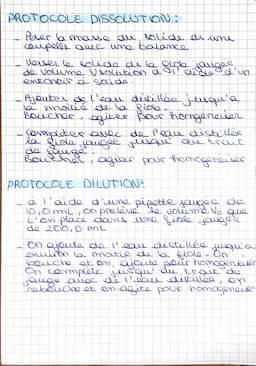 PROTOCOLE DISSOLUTION :
- Peser la masse du solide ds une
coupelle avec une balance
- Verser le solide ds la fiole jaugée
de volume Vsolution à l'aide d'un
entonoir à solide.
- Ajouter de l'eau distillée jusqu'à
la moitié de la fiole.
Boucher, agiter pour homogeneiser
- Compléter avec de l'eau distillée
la fiole jaugée jusqu'au trait
de jauge.
Boucher, agiter pour homogeneiser
PROTOCOLE DILUTION :
- à l'aide d'une pipette jaugée de
10,0 mL, on prélève le volume V0 que
l'on place dans une fiole jaugée
de 200,0 mL
- On ajoute de l'eau distillée jusqu'à
environ la moitié de la fiole. On
bouche et on agite pour homogeneiser
On complète jusqu'au trait de
jauge avec de l'eau distillée, on
rebouche et on agite pour homogeneiser